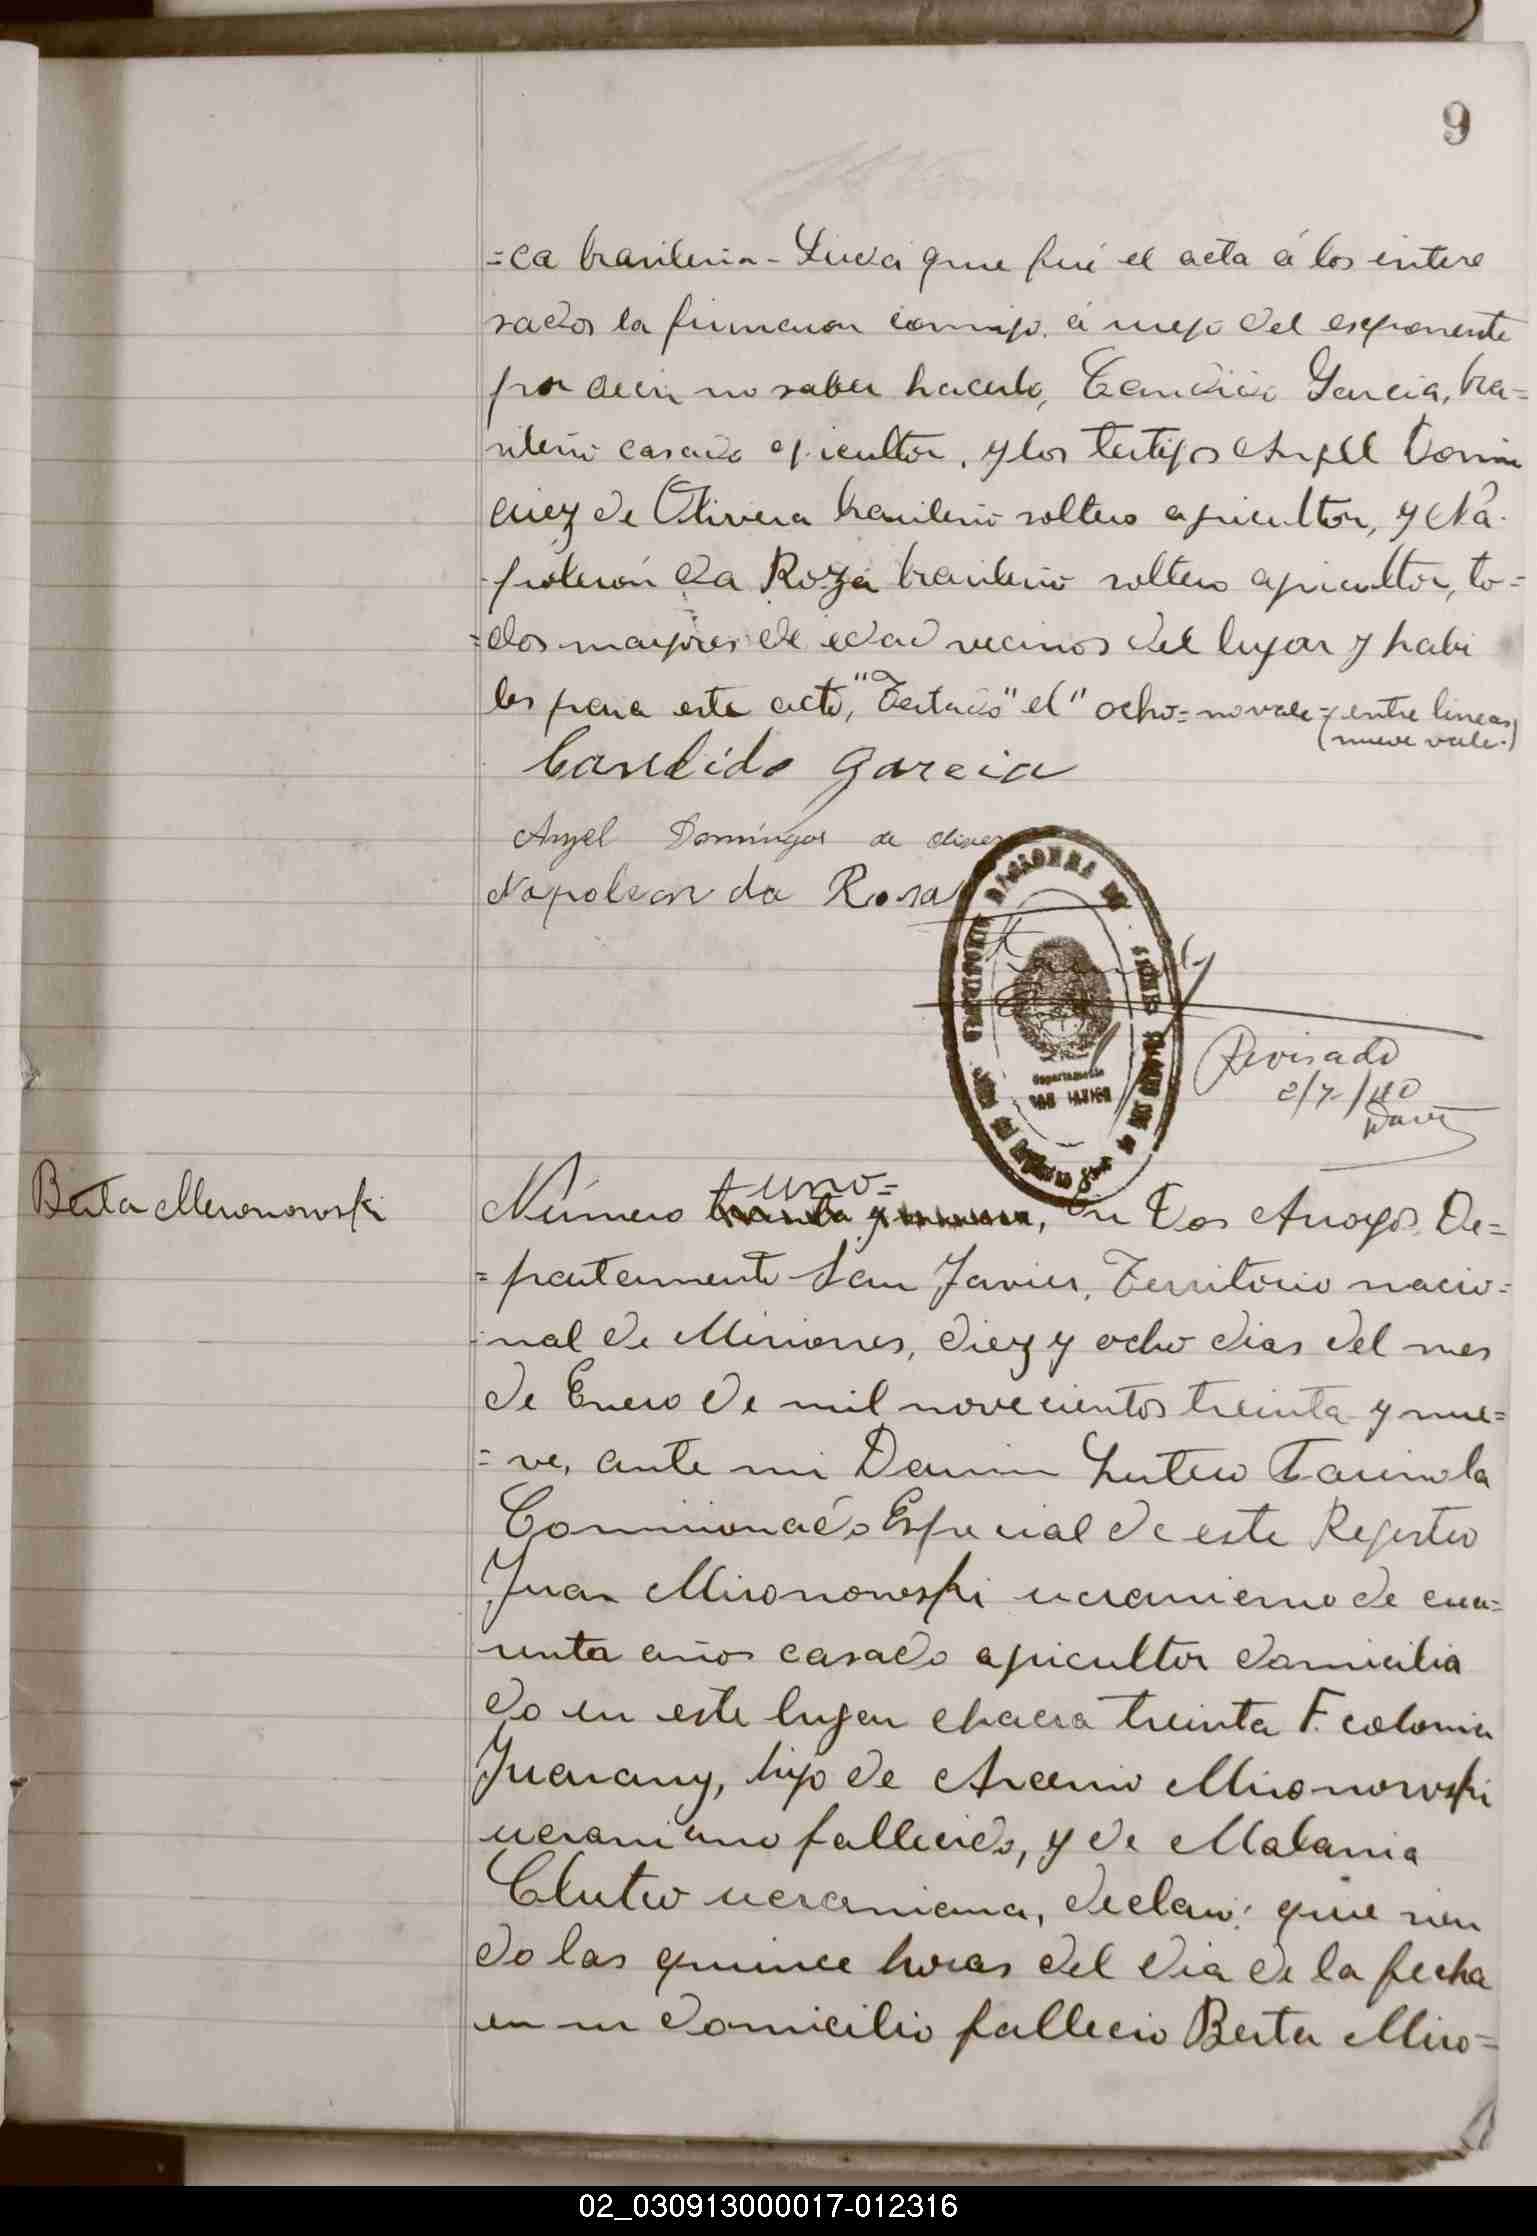 9
=ca brasileña - Leida que fué el acta á los intere
sados la firmaron conmigo. á ruego del exponente
por decir no saber hacerlo, Candido Garcia, bra=
sileño casado agricultor, y los testigos Angel Domin
guez de Olivera brasileño soltero agricultor, y Na-
-poleón da Roza brasileño soltero agricultor, to=
=dos mayores de edad vecinos del lugar y habi
les para este acto, "Testado" el "ocho= no vale= entre lineas
(nueve vale.)
Candido Garcia
Angel Domingos de Oliver
Napoleon da Rosa
Revisado
2/7/40
Berta Meronowski
uno=
Número treinta y, En Dos Arroyos, De=
=partamento San Javier, Territorio nacio=
=nal de Misiones, diez y ocho dias del mes
de Enero de mil novecientos treinta y nue=
=ve, ante mi Lutero
Comisionado Especial de este Registro
Juan Mironowski ucraniano de cua=
renta años casado agricultor domicilia
do en este lugar chacra treinta F. colonia
Guarany, hijo de Arcenio Mironowski
ucraniano fallecido, y de Malania
ucraniana, declaró: que sien
do las quince horas del dia de la fecha
en su domicilio fallecio Berta Miro=
02_030913000017-012316